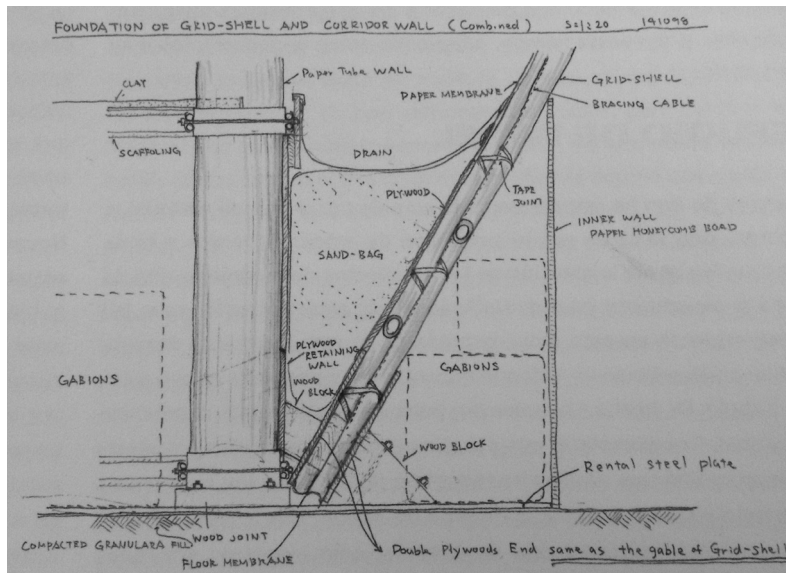 FOUNDATION OF GRID-SHELL AND CORRIDOR WALL (Combined) S=1:20 141098
CLAY
Paper Tube WALL
PAPER MEMBRANE
GRID-SHELL
BRACING CABLE
SCAFFOLING
DRAIN
PLYWOOD
TAPE
JOINT
INNER WALL
PAPER HONEYCOMB BOAD
SAND-BAG
PLYWOOD
RETAINING
WALL
GABIONS
GABIONS
WOOD
BLOCK
WOOD BLOCK
Rental steel plate
COMPACTED GRANULARA FILL
WOOD JOINT
FLOOR MEMBRANE
Double Plywoods End same as the gable of Grid-shell